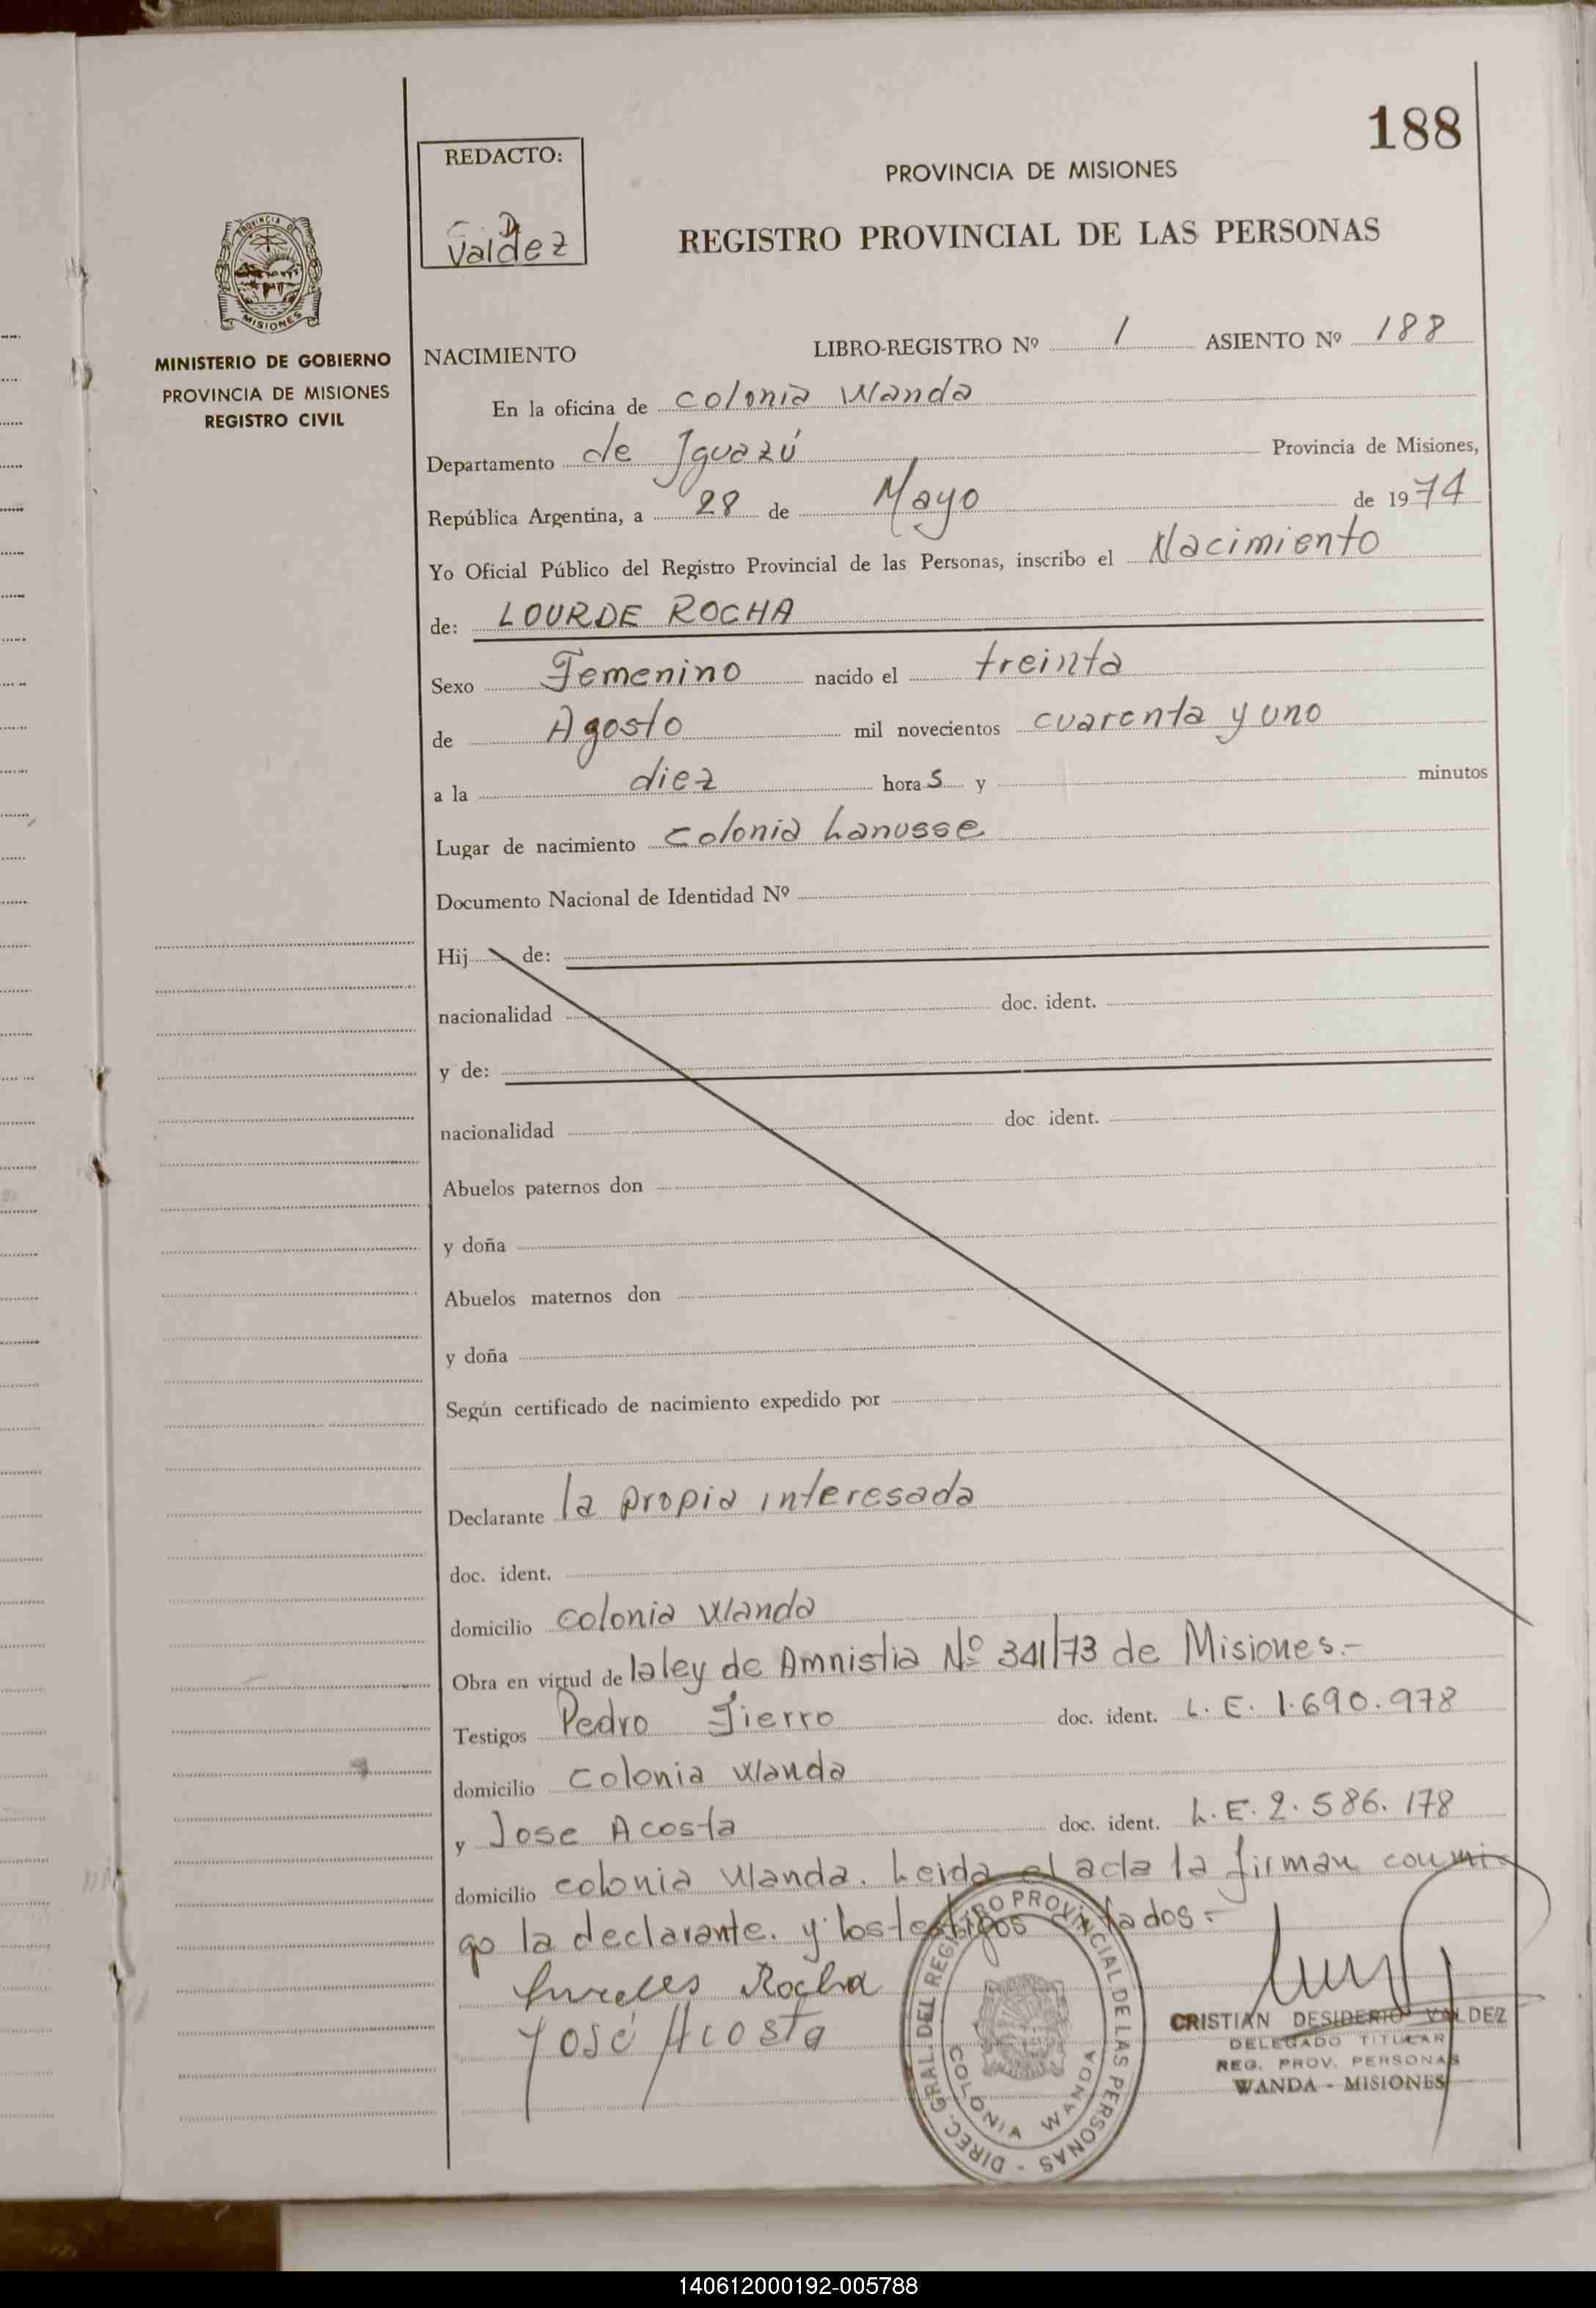 188
REDACTO:
C D
Valdez
PROVINCIA DE MISIONES
REGISTRO PROVINCIAL DE LAS PERSONAS
PROVINCIA D
MISIONES
MINISTERIO DE GOBIERNO
PROVINCIA DE MISIONES
REGISTRO CIVIL
NACIMIENTO LIBRO-REGISTRO Nº 1 ASIENTO Nº 188
En la oficina de colonia Wanda
Departamento de Iguazú Provincia de Misiones,
República Argentina, a 28 de Mayo de 1974
Yo Oficial Público del Registro Provincial de las Personas, inscribo el Nacimiento
de: LOURDE ROCHA
Sexo Femenino nacido el treinta
de Agosto mil novecientos cuarenta y uno
a la diez horas y minutos
Lugar de nacimiento colonia Lanusse
Documento Nacional de Identidad Nº
Hij de:
nacionalidad doc. ident.
y de:
nacionalidad doc. ident.
Abuelos paternos don
y doña
Abuelos maternos don
y doña
Según certificado de nacimiento expedido por
Declarante la propia interesada
doc. ident.
domicilio colonia Wanda
Obra en virtud de la ley de Amnistia Nº 341/73 de Misiones.-
Testigos Pedro Fierro doc. ident. L. E. 1.690.978
domicilio colonia Wanda
y Jose Acosta doc. ident. L. E. 2.586.178
domicilio colonia Wanda. Leida el acta la firman conmi
go la declarante. y los testigos citados-
Rocha
José Acosta
DIREC. GRAL. DEL REGISTRO PROVINCIAL DE LAS PERSONAS -
COLONIA WANDA
CRISTIAN DESIDERIO VALDEZ
DELEGADO TITULAR
REG. PROV. PERSONAS
WANDA - MISIONES
140612000192-005788